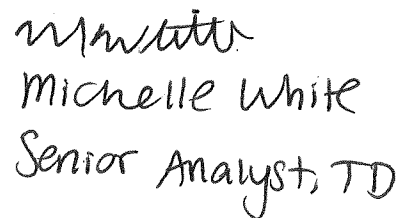 Michelle White
Senior Analyst, TD